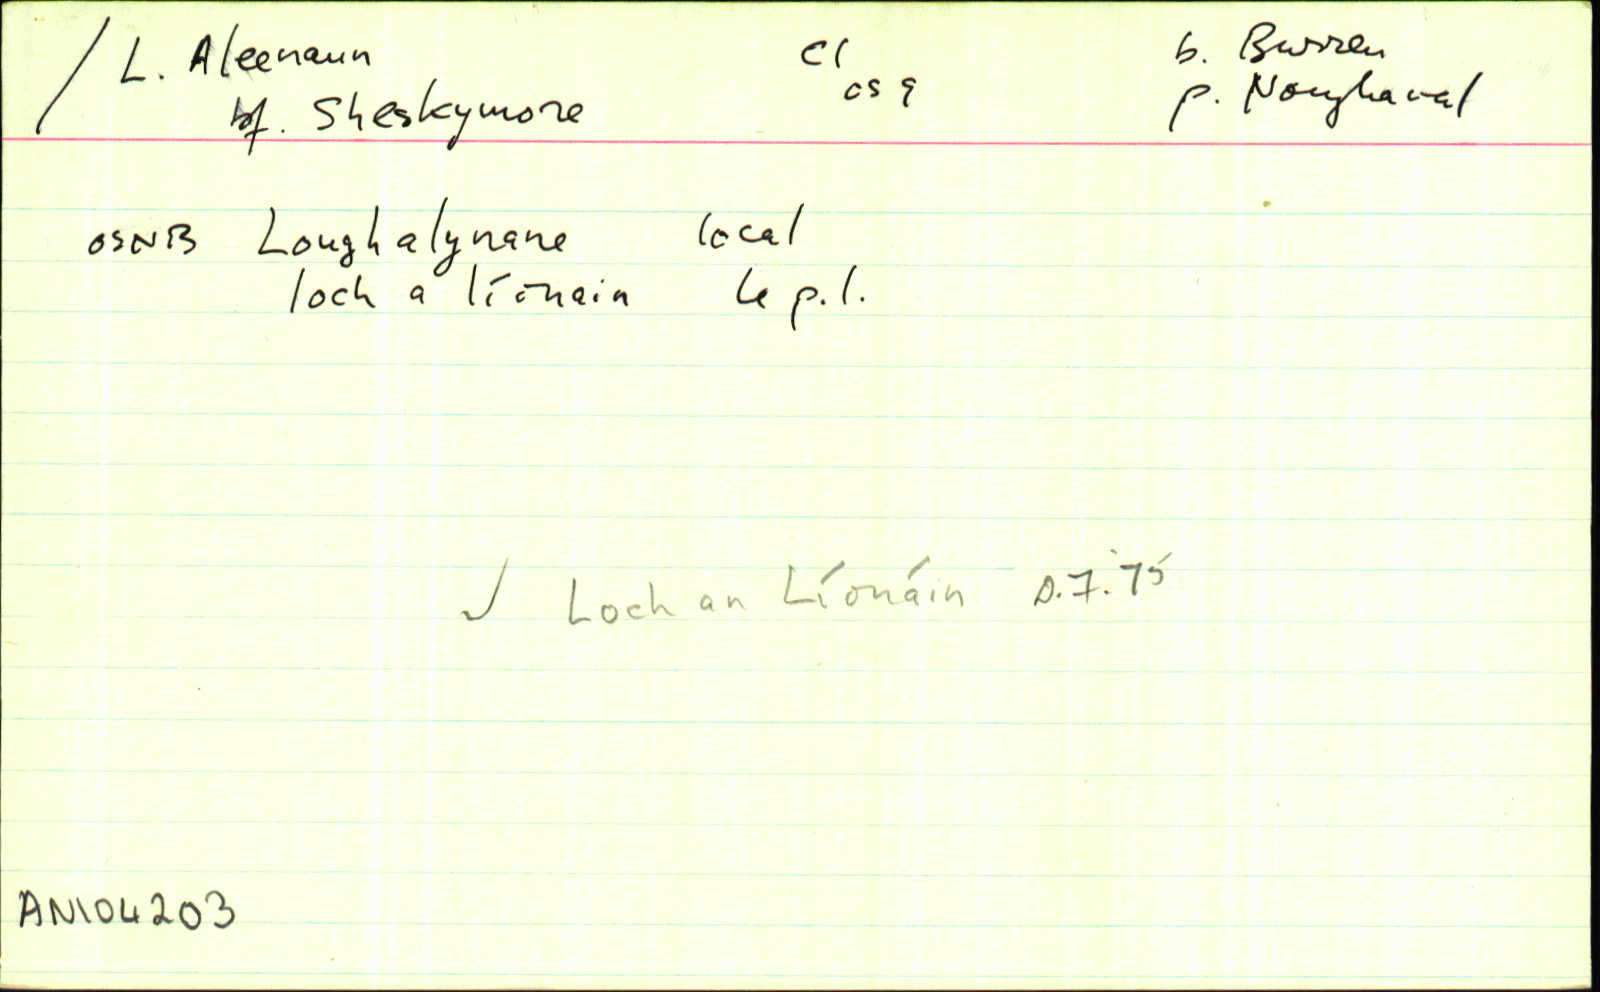 L. Aleenaun Cl b. Burren
bf. Sheskymore OS 9 p. Noughaval
OSNB Loughalynane local
loch a líonain le p.l.
✓ Loch an Líonáin D.7.75
AN104203